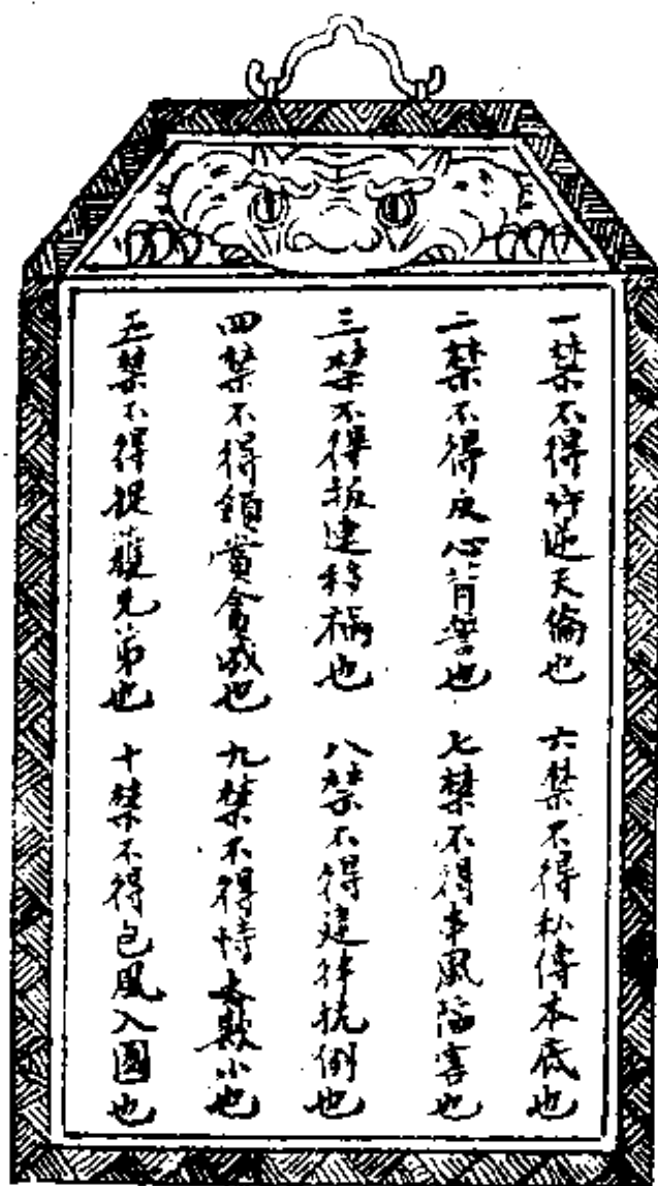 一禁不得忤逆天倫也
二禁不得反心背誓也
三禁不得扳建移禍也
四禁不得鎖賞會威也
五禁不得捉𦵑兄弟也
六禁不得私傳本底也
七禁不得串風陷害也
八禁不得違律抗例也
九禁不得恃大欺小也
十禁不得包風入圍也